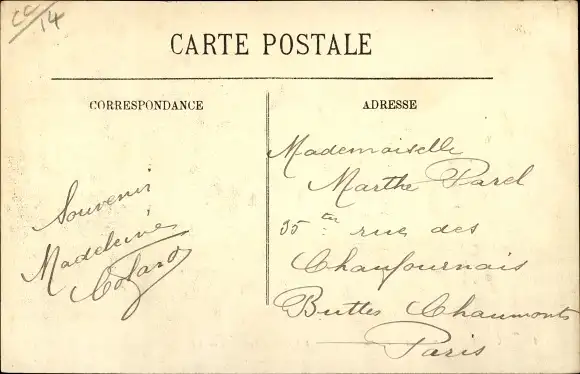 CC/14
CARTE POSTALE
CORRESPONDANCE
ADRESSE
Souvenir
Madeleine
Colard
Mademoiselle
Marthe Parel
35 ter rue des
Chaufournais
Buttes Chaumonts
Paris